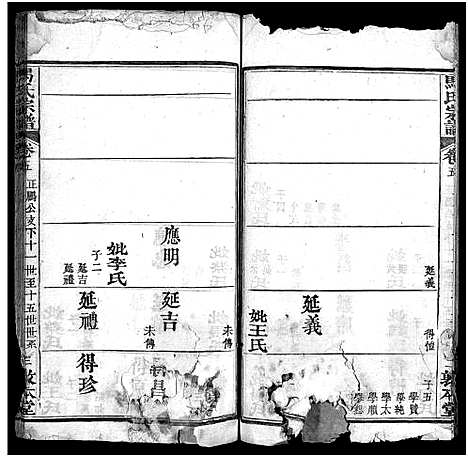 馬氏宗譜
卷五
敦本堂
延義
得恒
子五
學贊
學純
學太
學順
延義
妣王氏
應明
妣李氏
子二
延吉
延禮
延吉
未傳
延禮
未傳
得珍
馬氏宗譜
卷五
正鳳公支下十一世至十五世世系
三
敦本堂